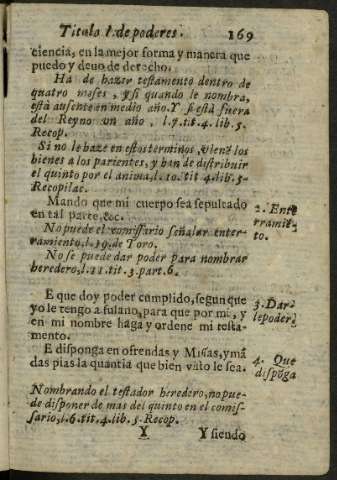 Titulo 1. de poderes. 169
ciencia, en la mejor forma y manera que
puedo y deuo de derecho.
Ha de hazer testamento dentro de
quatro meses, y si quando le nombra,
està ausente en medio año. Y si està fuera
del Reyno un año, l.7.t.4.lib.5.
Recop.
Si no le haze en estos terminos, vienẽ los
bienes a los parientes, y han de distribuir
el quinto por el anima, l.10.tit 4.lib.5.
Recopilac.
Mando que mi cuerpo sea sepultado
en tal parte, &c.
2. Ente
rramiẽ-
to.
No puede el comissario señalar enter-
ramiento, l.19. de Toro.
No se puede dar poder para nombrar
heredero, l.11.tit.3.part.6.
E que doy poder cumplido, segun que
yo le tengo a fulano, para que por mi, y
en mi nombre haga y ordene mi testa-
mento.
3. Dar
le poder
E disponga en ofrendas y Missas, y mã
das pias la quantia que bien visto le sea.
4. Que
dispõga
Nombrando el testador heredero, no pue-
de disponer de mas del quinto en el comis-
sario, l.6.tit.4.lib.5. Recop.
Y Y siendo